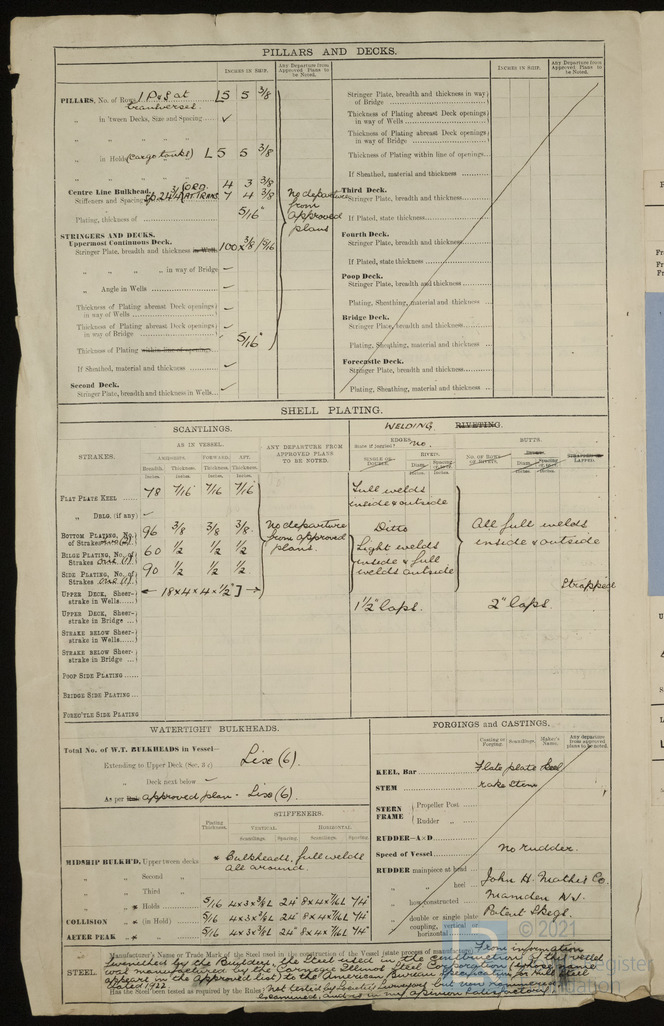 PILLARS AND DECKS.
INCHES IN SHIP.
Any Departure from Approved Plans to be Noted.
INCHES IN SHIP.
Any Departure from Approved Plans to be Noted.
PILLARS, No. of Rows 1 P & S at transverses. L5 5 3/8
„ in 'tween Decks, Size and Spacing ✓
„ „ „ „
„ in Holds (Cargo tanks) L 5 5 3/8
„ „ 4 3 3/8
Centre Line Bulkhead.
Stiffeners and Spacing ORD. AT TRANS. 7 4 3/8
Plating, thickness of 5/16
No departure from approved plans
STRINGERS AND DECKS.
Uppermost Continuous Deck.
Stringer Plate, breadth and thickness in Wells 100 x 3/8 / 5/16
„ „ „ „ in way of Bridge
„ Angle in Wells
Thickness of Plating abreast Deck openings in way of Wells
Thickness of Plating abreast Deck openings in way of Bridge
Thickness of Plating within line of openings 5/16"
If Sheathed, material and thickness
Second Deck.
Stringer Plate, breadth and thickness in Wells
Stringer Plate, breadth and thickness in way of Bridge
Thickness of Plating abreast Deck openings in way of Wells
Thickness of Plating abreast Deck openings in way of Bridge
Thickness of Plating within line of openings
If Sheathed, material and thickness
Third Deck.
Stringer Plate, breadth and thickness
If Plated, state thickness
Fourth Deck.
Stringer Plate, breadth and thickness
If Plated, state thickness
Poop Deck.
Stringer Plate, breadth and thickness
Plating, Sheathing, material and thickness
Bridge Deck.
Stringer Plate, breadth and thickness
Plating, Sheathing, material and thickness
Forecastle Deck.
Stringer Plate, breadth and thickness
Plating, Sheathing, material and thickness
SHELL PLATING.
SCANTLINGS.
WELDING RIVETING.
STRAKES.
AS IN VESSEL.
ANY DEPARTURE FROM APPROVED PLANS TO BE NOTED.
EDGES.
State if joggled? No.
BUTTS.
AMIDSHIPS. FORWARD. AFT.
Breadth. Thickness. Thickness. Thickness.
Inches. Inches. Inches. Inches.
SINGLE OR DOUBLE.
RIVETS.
Diam. Spacing
NO. OF ROWS OF RIVETS.
LAPPED.
FLAT PLATE KEEL 78 7/16 7/16 7/16 Full welds inside & outside
„ DBLG. (if any)
BOTTOM PLATING, No. of Strakes 96 3/8 3/8 3/8 No departure from approved plans. Ditto All full welds inside & outside
BILGE PLATING, No. of Strakes one (1) 60 1/2 1/2 1/2 Light welds inside & full welds outside
SIDE PLATING, No. of Strakes one (1) 90 1/2 1/2 1/2 Strapped
UPPER DECK, Sheerstrake in Wells ← 18 x 4 x 4 x 1/2" ] → 1 1/2" laps. 2" laps.
UPPER DECK, Sheerstrake in Bridge
STRAKE BELOW Sheerstrake in Wells
STRAKE BELOW Sheerstrake in Bridge
POOP SIDE PLATING
BRIDGE SIDE PLATING
FOREC'TLE SIDE PLATING
WATERTIGHT BULKHEADS.
Total No. of W.T. BULKHEADS in Vessel—
Extending to Upper Deck (Sec. 3 c) Six (6).
„ Deck next below
As per approved plan - Six (6).
STIFFENERS.
Plating Thickness.
VERTICAL. HORIZONTAL.
Scantlings. Spacing. Scantlings. Spacing.
MIDSHIP BULKH'D, Upper tween decks * Bulkheads, full welds all around.
„ „ Second „
„ „ Third „
„ „ * Holds 5/16 4x3x3/8 L 24" 8x4x7/16 L 74"
COLLISION „ * (in Hold) 5/16 4x3x3/8 L 24" 8x4x7/16 L 74"
AFTER PEAK „ * „ 5/16 4x3x3/8 L 24" 8x4x7/16 L 74"
FORGINGS and CASTINGS.
Casting or Forging. Scantlings. Maker's Name. Any departure from approved plans to be noted.
KEEL, Bar Flat plate keel
STEM rake stem
STERN FRAME Propeller Post
Rudder „
RUDDER—A×D
Speed of Vessel No rudder.
RUDDER mainpiece at head
„ „ heel John H. Mathis Co.
„ how constructed N.J.
„ double or single plate Skegs.
„ coupling, vertical
horizontal
© 2021
STEEL.
Manufacturer's Name or Trade Mark of the Steel used in the construction of the Vessel (state process of manufacture) From information
furnished by the Builders, the steel used in the construction of this vessel
was manufactured by the Carnegie Illinois Steel Corporation (whose name
appears in the approved list) to the American Bureau Specification for Hull Steel
dated 1922
Has the Steel been tested as required by the Rules? Not tested by Society's Surveyors but
examined, and is in my opinion satisfactory.